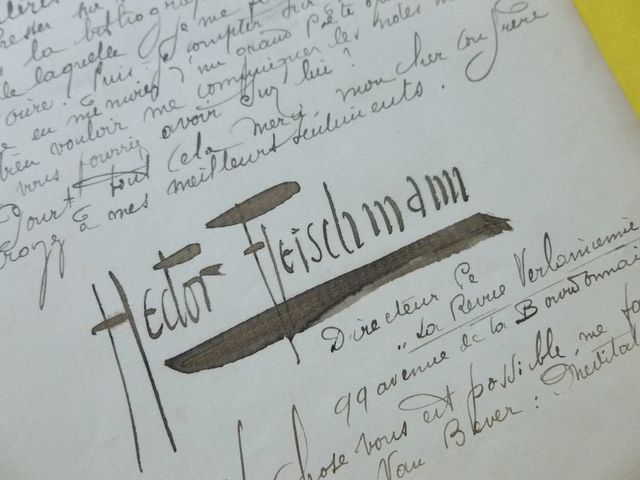 la bibliograp
de laquelle je me
oire. Puis-je compter sur
e en mémoires d'un grand Poëte
bien vouloir me communiquer les notes
vous pourriez avoir sur lui?
Pour tout cela merci, mon cher confrère
croyez à mes meilleurs sentiments.
Hector Fleischmann
Directeur de
"La Revue Verlainienne
99 avenue de la Bourdonnais
chose vous est possible me fa
Van Bever: